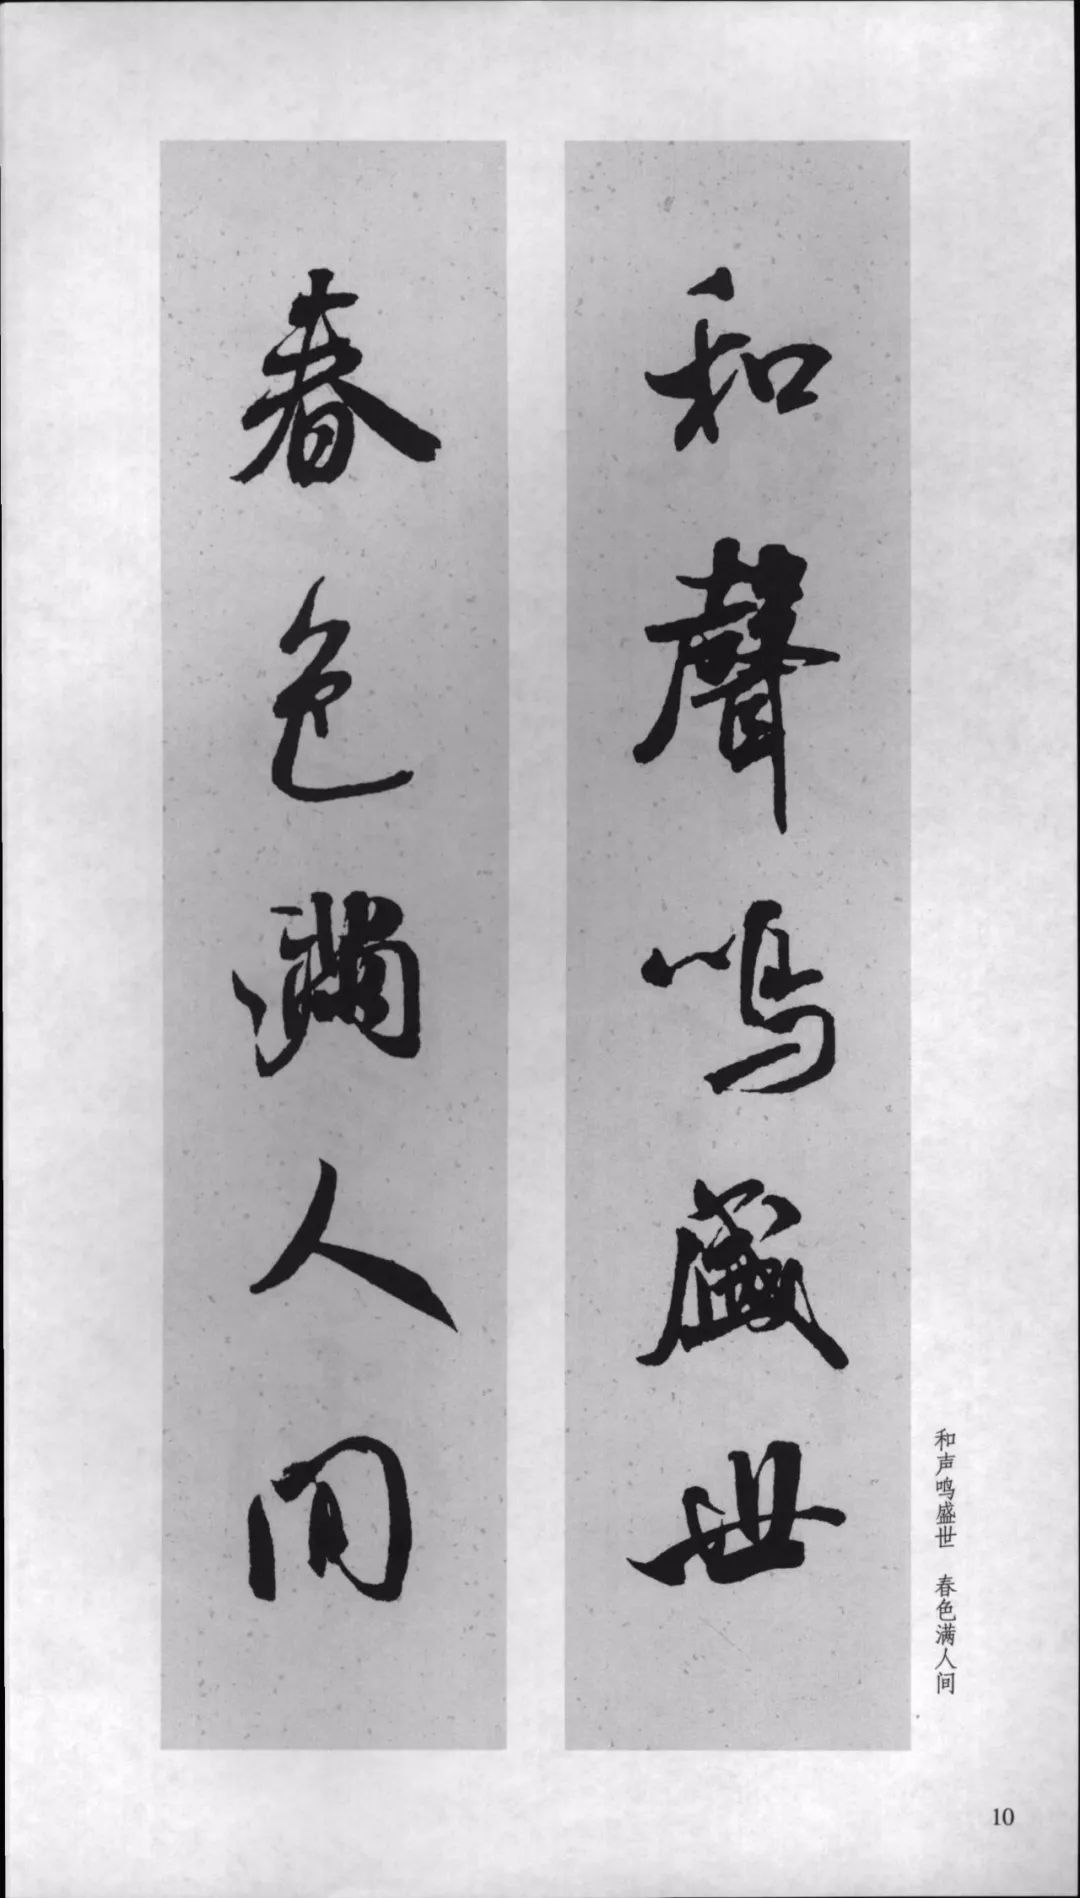 和聲鳴盛世
春色滿人間
和声鸣盛世 春色满人间
10